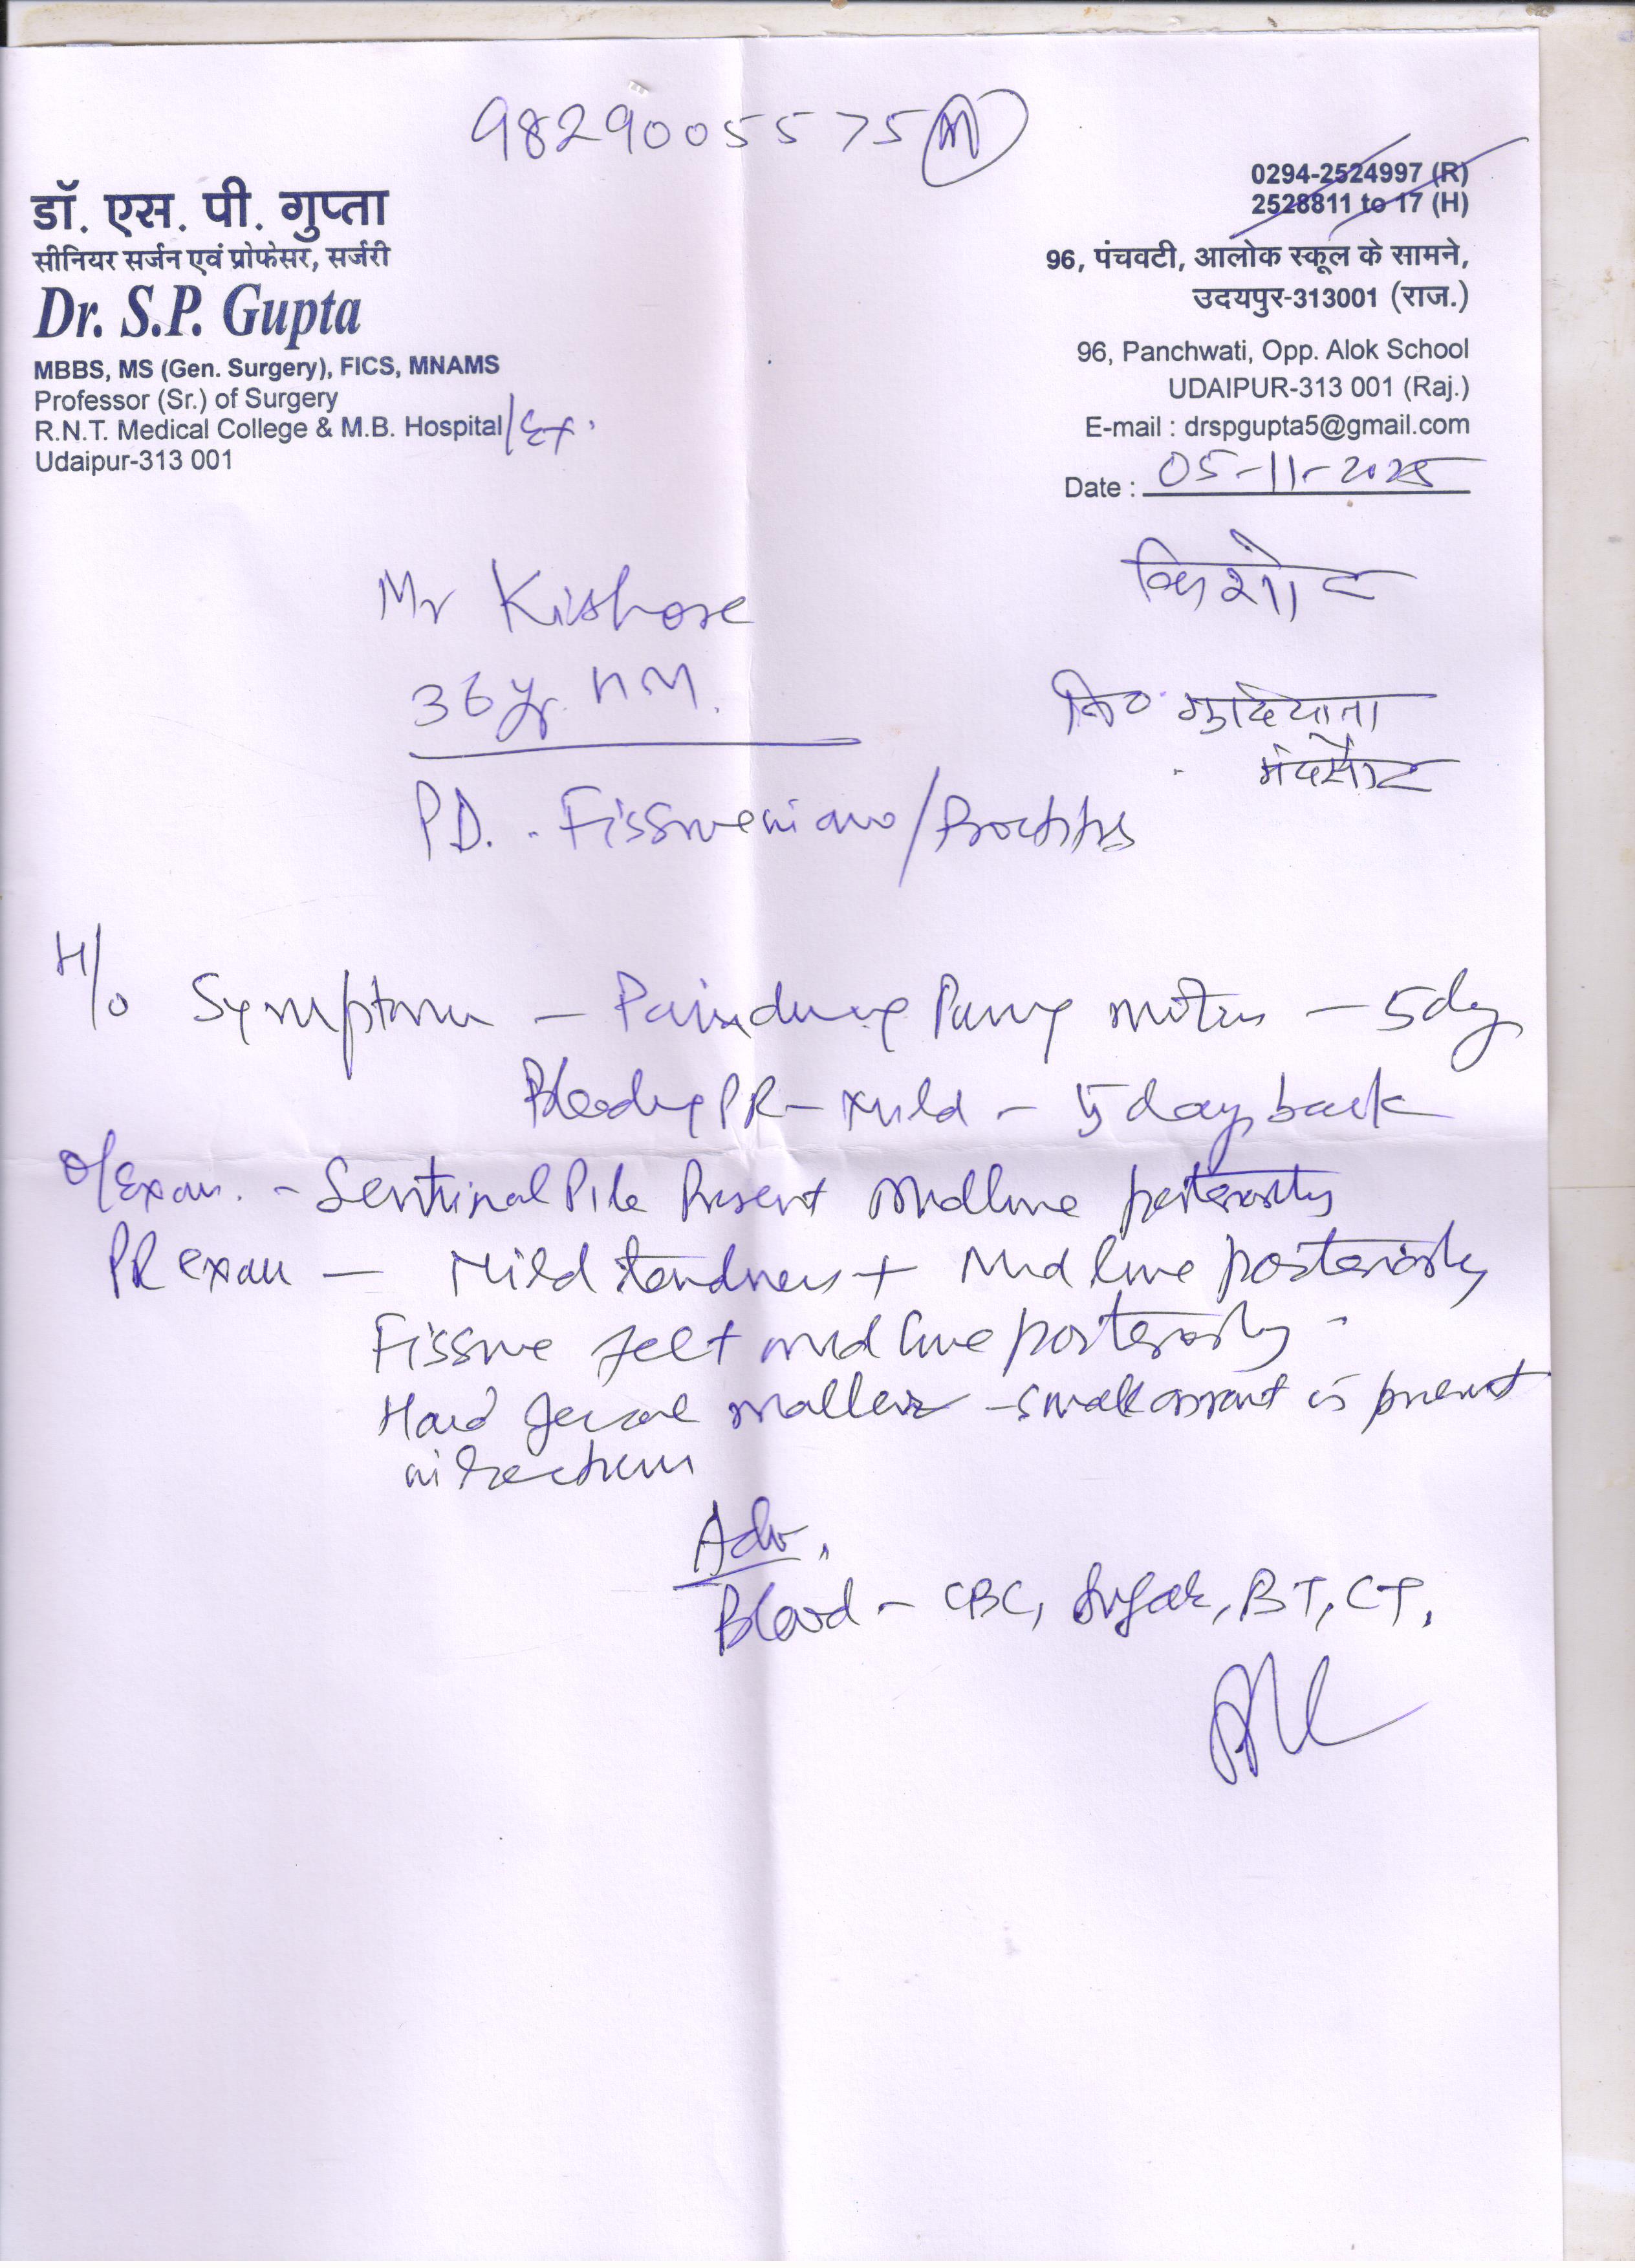 9829005575 (M)
डॉ. एस. पी. गुप्ता
सीनियर सर्जन एवं प्रोफेसर, सर्जरी
Dr. S.P. Gupta
MBBS, MS (Gen. Surgery), FICS, MNAMS
Professor (Sr.) of Surgery
R.N.T. Medical College & M.B. Hospital/Ex.
Udaipur-313 001
0294-2524997 (R)
2528811 to 17 (H)
96, पंचवटी, आलोक स्कूल के सामने,
उदयपुर-313001 (राज.)
96, Panchwati, Opp. Alok School
UDAIPUR-313 001 (Raj.)
E-mail : drspgupta5@gmail.com
Date : 05-11-2025
Mr Kishore
किशोर
36 yr.
मंदसौर
PD. - Fissure in ano/Proctitis
H/o Symptoms - Pain during Passing motion - 5 day
Bleeding PR - mild - 5 days back
O/Exam. - Sentinal Pile Present midline posteriorly
PR exam - Mild tenderness + Mid line posteriorly
Fissure felt mid line posteriorly -
Hard fecal matter - small amount is present
in rectum
Adv.
Blood - CBC, Sugar, BT, CT.